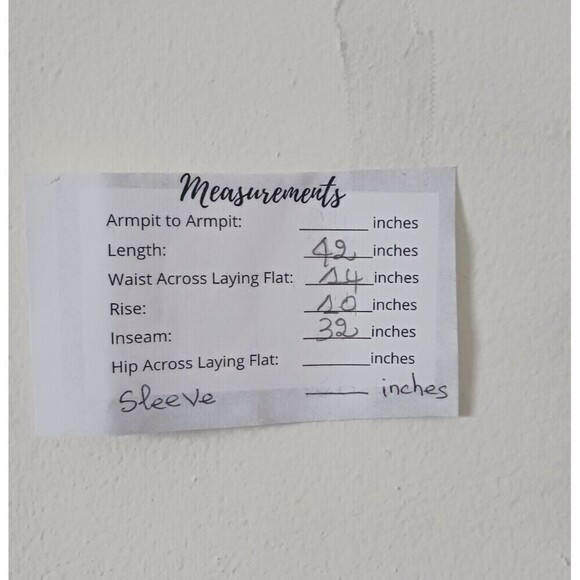 Measurements
Armpit to Armpit: ________ inches
Length: 42 inches
Waist Across Laying Flat: 14 inches
Rise: 10 inches
Inseam: 32 inches
Hip Across Laying Flat: ________ inches
Sleeve ____ inches